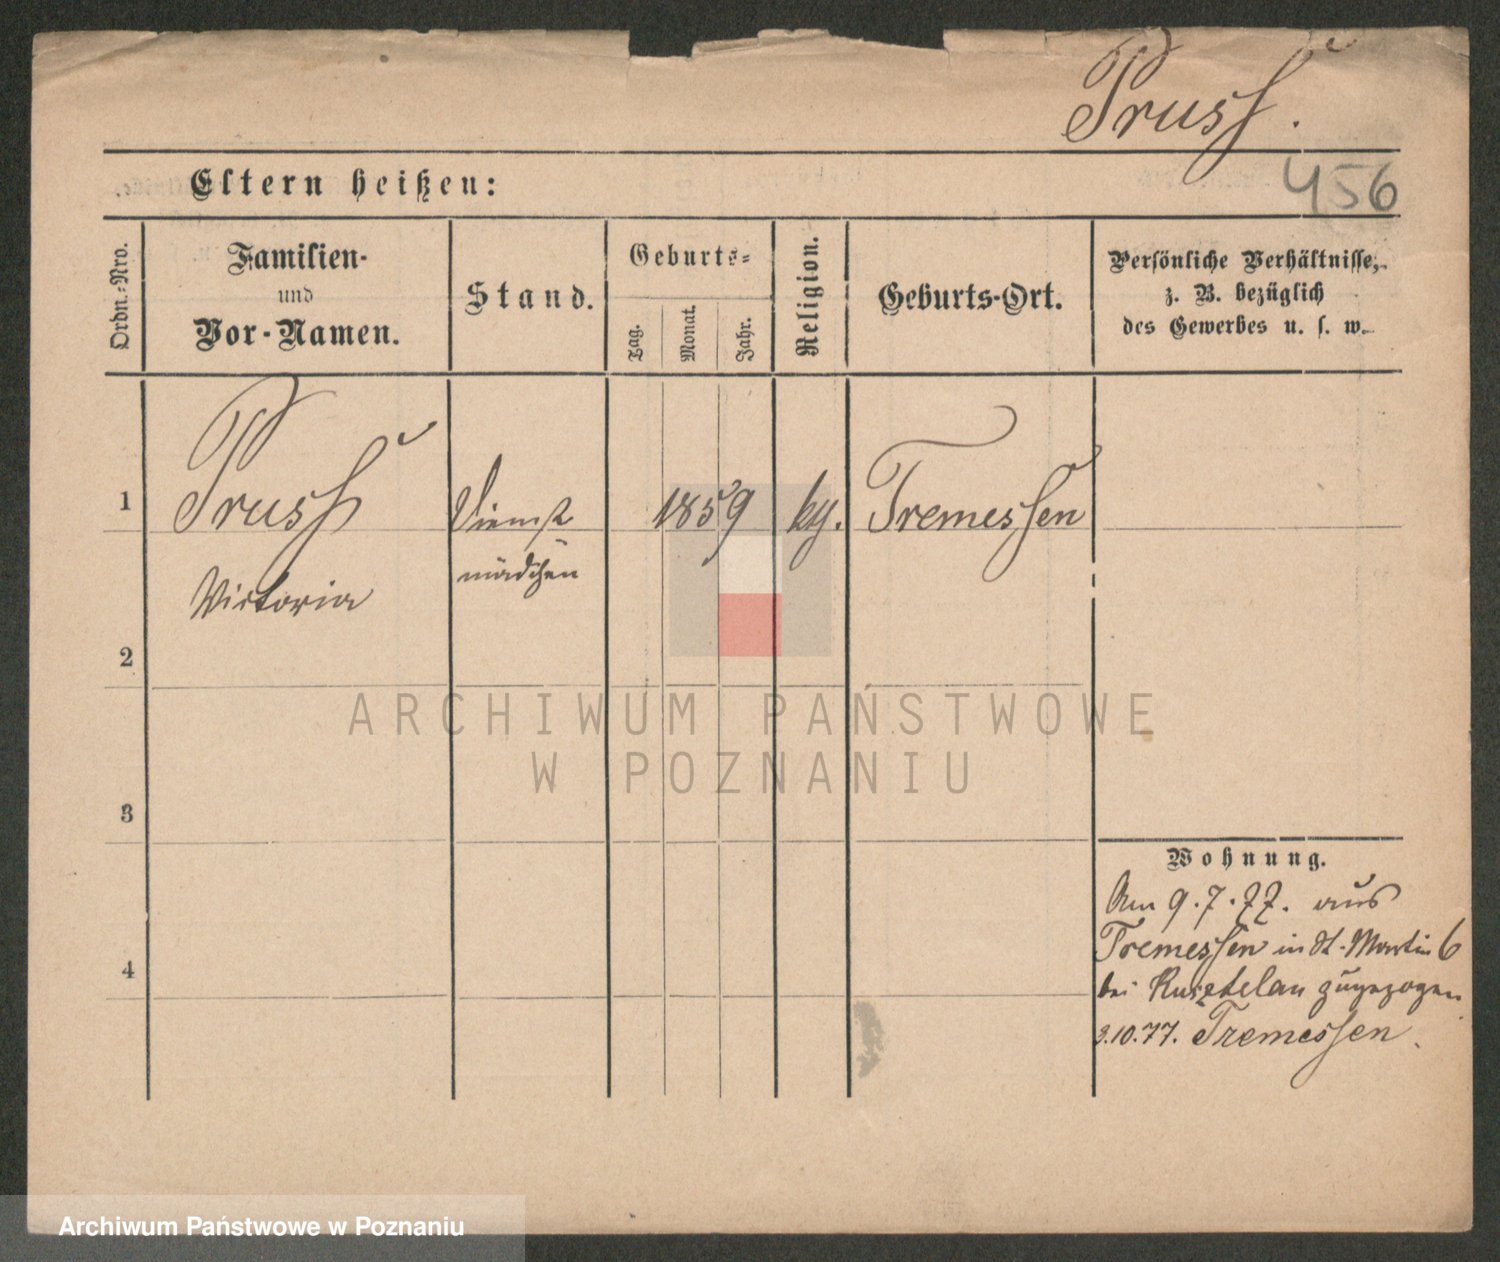 Pruss.
456
Eltern heißen:
Ordn.-Nro.
Familien-
und
Vor-Namen.
Stand.
Geburts-
Tag.
Monat.
Jahr.
Religion.
Geburts-Ort.
Persönliche Verhältnisse,
z. B. bezüglich
des Gewerbes u. s. w.
1
Pruss
Dienst
1859
Tremessen
mädchen
Victoria
2
ARCHIWUM PAŃSTWOWE
W POZNANIU
3
Wohnung.
Am 9.7.77. aus
Tremessen in St. Martin 6
bei zugezogen
3.10.77. Tremessen.
4
Archiwum Państwowe w Poznaniu